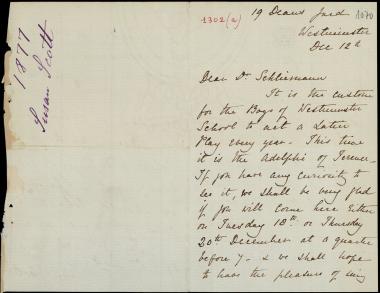 1877
Susan Scott
1302(a)
1070
19 Deans Yard
Westminster
Dec 12th
Dear Dr Schliemann
It is the custom
for the Boys of Westminster
School to act a Latin
Play every year. This time
it is the Adelphi of Terence.
If you have any curiosity to
see it, we shall be very glad
if you will come here either
on Tuesday 18th or Thursday
20th December at a quarter
before 7. & we shall hope
to have the pleasure of